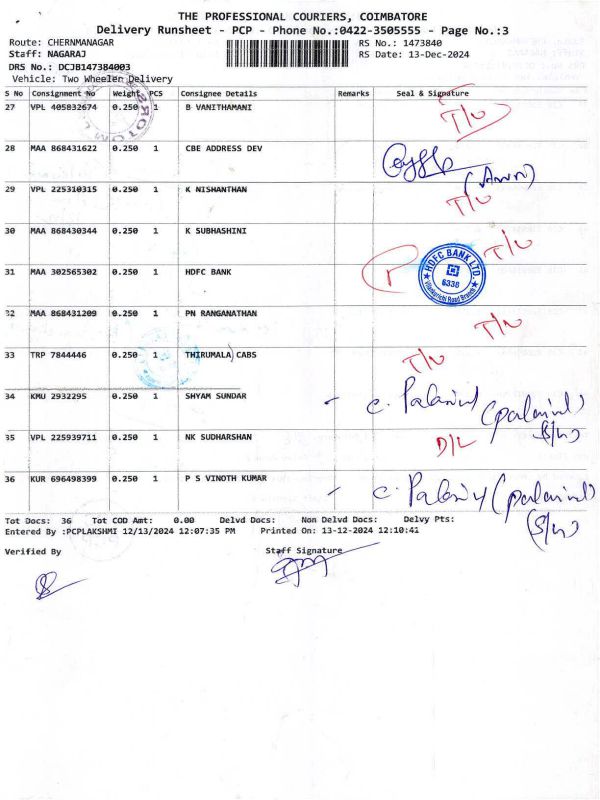 THE PROFESSIONAL COURIERS, COIMBATORE
Delivery Runsheet - PCP - Phone No.:0422-3505555 - Page No.:3
Route: CHERNMANAGAR RS No.: 1473840
Staff: NAGARAJ RS Date: 13-Dec-2024
DRS No.: DCJB147384003
Vehicle: Two Wheeler Delivery
S No Consignment No Weight PCS Consignee Details Remarks Seal & Signature
27 VPL 405832674 0.250 1 B VANITHAMANI T/U
28 MAA 868431622 0.250 1 CBE ADDRESS DEV
29 VPL 225310315 0.250 1 K NISHANTHAN T/U
30 MAA 868430344 0.250 1 K SUBHASHINI T/U
31 MAA 302565302 0.250 1 HDFC BANK HDFC BANK LTD. 6336
32 MAA 868431209 0.250 1 PN RANGANATHAN T/U
33 TRP 7844446 0.250 1 THIRUMALA CABS T/U
34 KMU 2932295 0.250 1 SHYAM SUNDAR
35 VPL 225939711 0.250 1 NK SUDHARSHAN D/L
36 KUR 696498399 0.250 1 P S VINOTH KUMAR
Tot Docs: 36 Tot COD Amt: 0.00 Delvd Docs: Non Delvd Docs: Delvy Pts:
Entered By :PCPLAKSHMI 12/13/2024 12:07:35 PM Printed On: 13-12-2024 12:10:41
Verified By Staff Signature